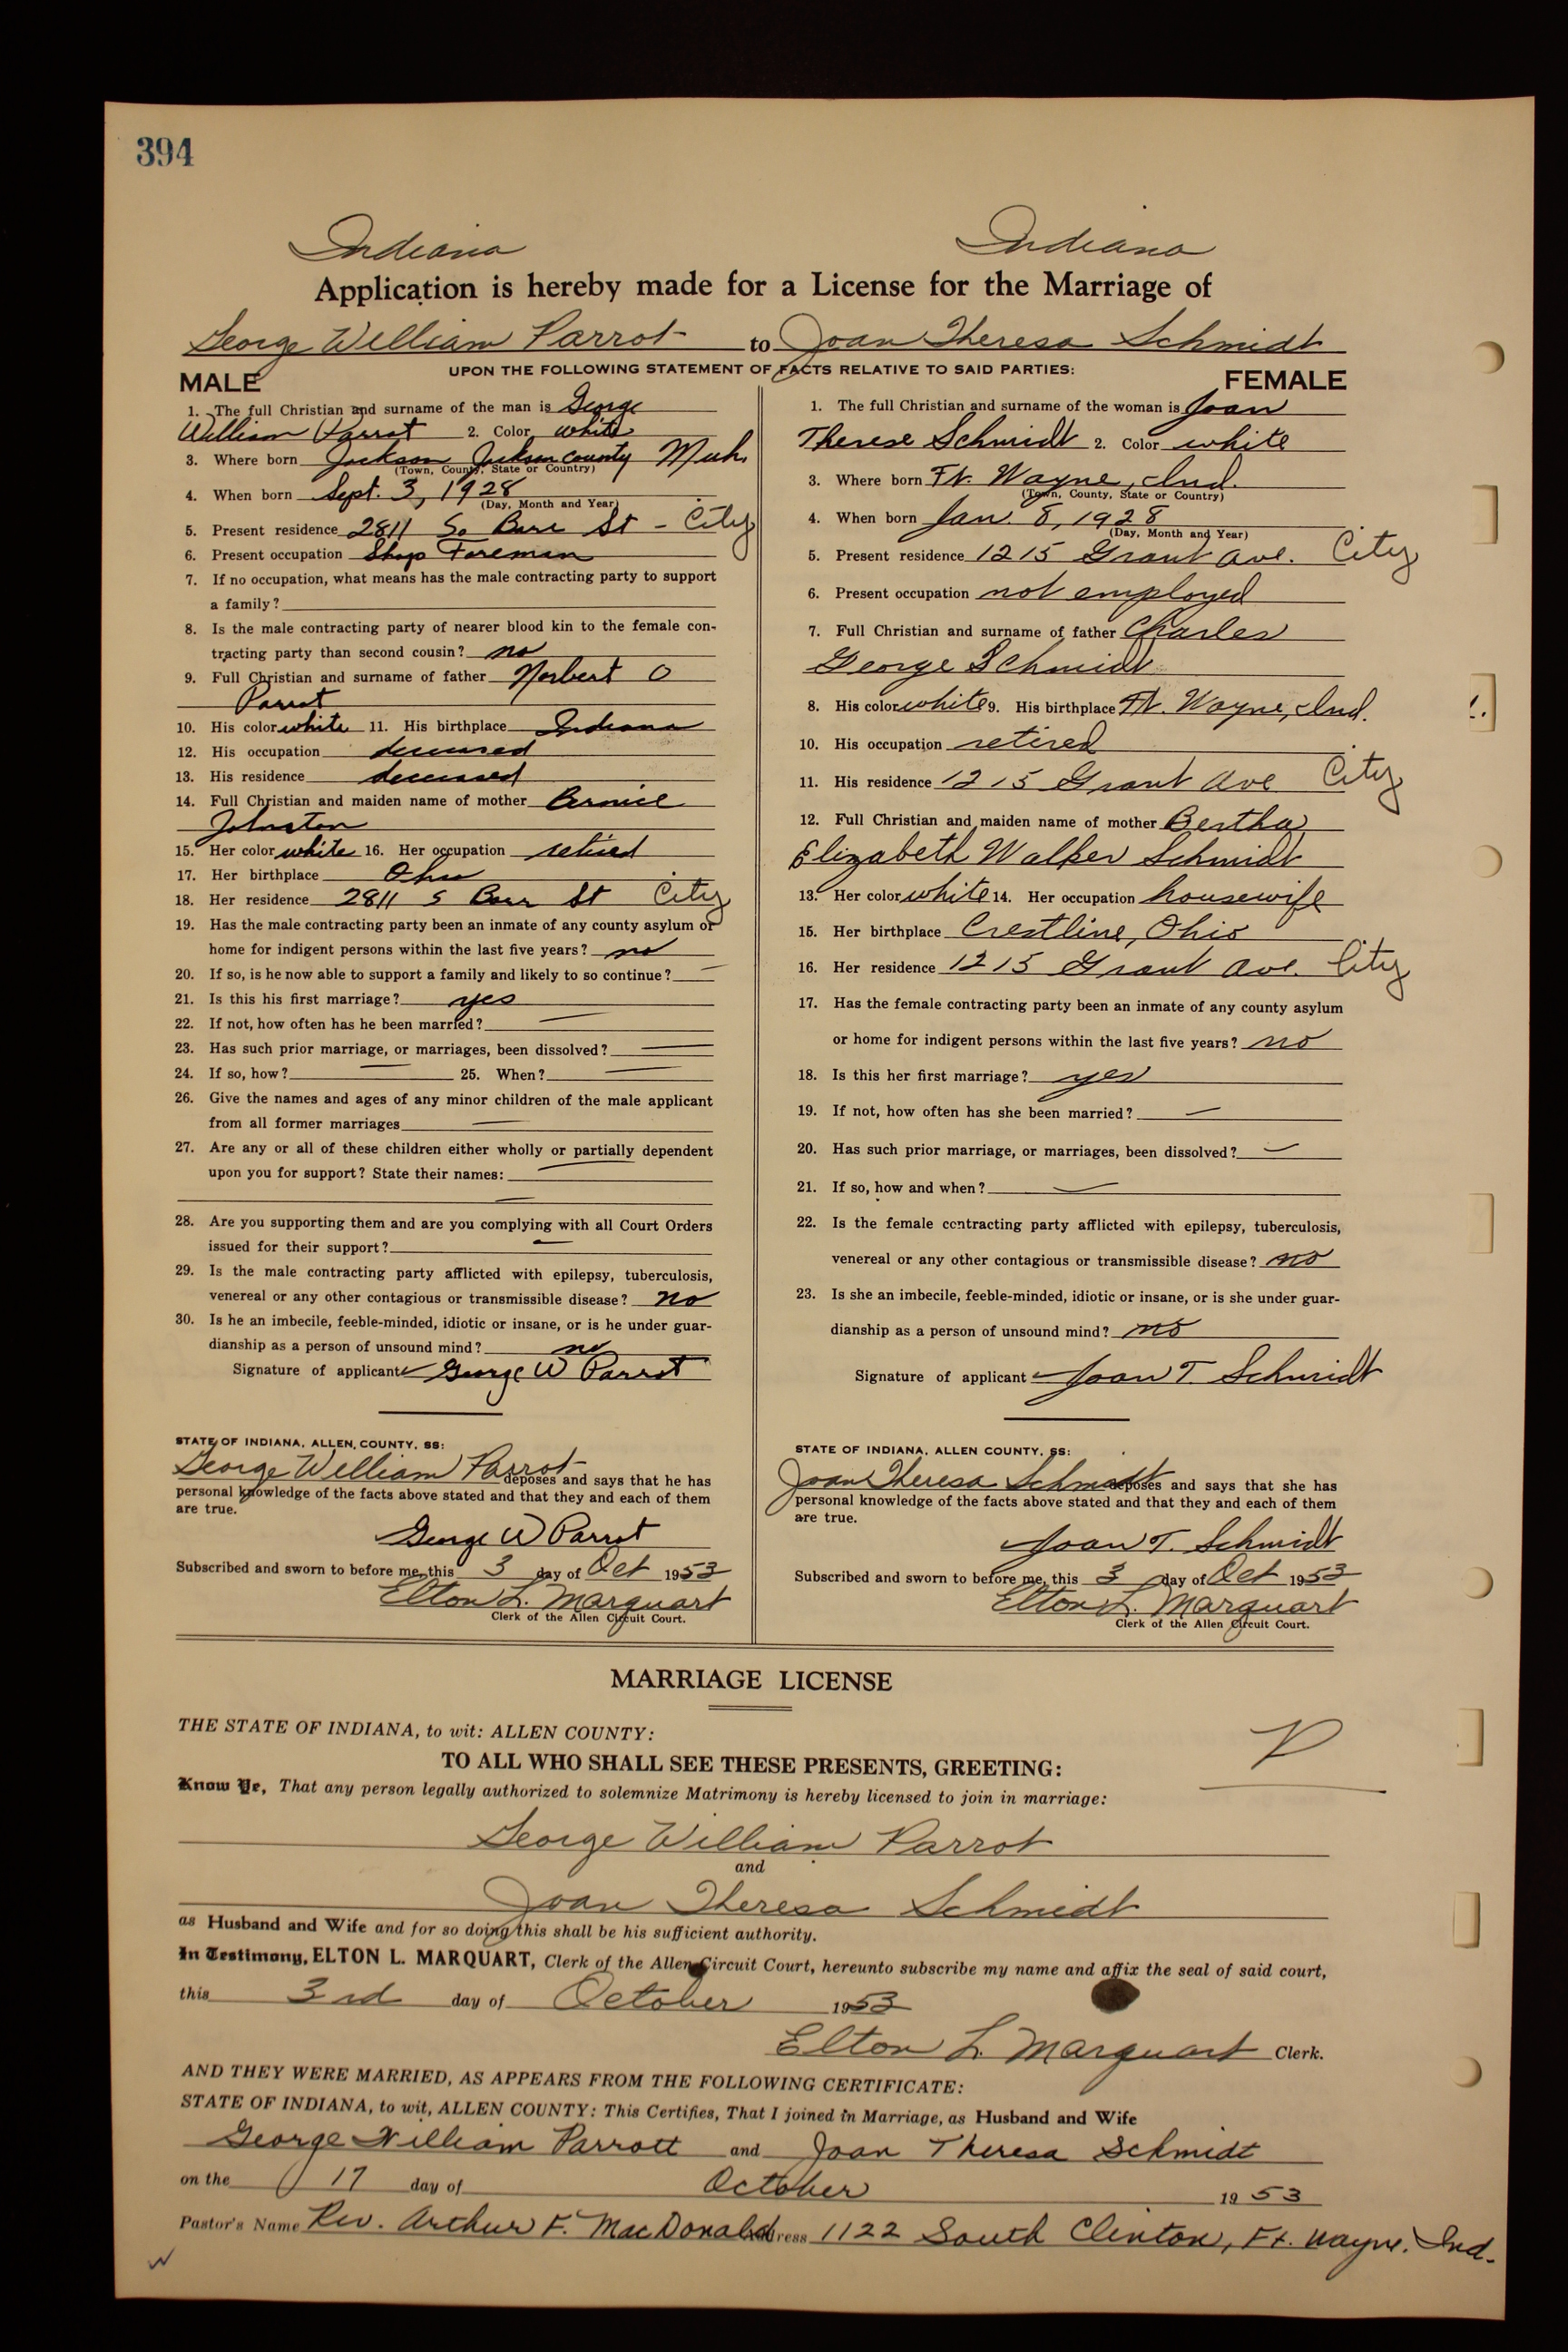 394
Indiana Indiana
Application is hereby made for a License for the Marriage of
George William Parrot to Joan Theresa Schmidt
UPON THE FOLLOWING STATEMENT OF FACTS RELATIVE TO SAID PARTIES:
MALE
1. The full Christian and surname of the man is George
William Parrot 2. Color white
3. Where born Jackson Jackson County Mich
(Town, County, State or Country)
4. When born Sept. 3, 1928
(Day, Month and Year)
5. Present residence 2811 So Barr St - City
6. Present occupation Shop Foreman
7. If no occupation, what means has the male contracting party to support
a family?
8. Is the male contracting party of nearer blood kin to the female con-
tracting party than second cousin? no
9. Full Christian and surname of father Norbert O
Parrot
10. His color white 11. His birthplace Indiana
12. His occupation deceased
13. His residence deceased
14. Full Christian and maiden name of mother Bernice
Johnston
15. Her color white 16. Her occupation retired
17. Her birthplace Ohio
18. Her residence 2811 S Barr St City
19. Has the male contracting party been an inmate of any county asylum or
home for indigent persons within the last five years? no
20. If so, is he now able to support a family and likely to so continue? —
21. Is this his first marriage? yes
22. If not, how often has he been married? —
23. Has such prior marriage, or marriages, been dissolved? —
24. If so, how? — 25. When? —
26. Give the names and ages of any minor children of the male applicant
from all former marriages —
27. Are any or all of these children either wholly or partially dependent
upon you for support? State their names: —
—
28. Are you supporting them and are you complying with all Court Orders
issued for their support? —
29. Is the male contracting party afflicted with epilepsy, tuberculosis,
venereal or any other contagious or transmissible disease? no
30. Is he an imbecile, feeble-minded, idiotic or insane, or is he under guar-
dianship as a person of unsound mind? no
Signature of applicant George W Parrot
STATE OF INDIANA, ALLEN COUNTY, SS:
George William Parrot deposes and says that he has
personal knowledge of the facts above stated and that they and each of them
are true.
George W Parrot
Subscribed and sworn to before me, this 3 day of Oct 1953
Elton L. Marquart
Clerk of the Allen Circuit Court.
FEMALE
1. The full Christian and surname of the woman is Joan
Therese Schmidt 2. Color white
3. Where born Ft. Wayne, Ind.
(Town, County, State or Country)
4. When born Jan. 8, 1928
(Day, Month and Year)
5. Present residence 1215 Grant Ave. City
6. Present occupation not employed
7. Full Christian and surname of father Charles
George Schmidt
8. His color white 9. His birthplace Ft. Wayne, Ind.
10. His occupation retired
11. His residence 1215 Grant Ave City
12. Full Christian and maiden name of mother Bertha
Elizabeth Walker Schmidt
13. Her color white 14. Her occupation housewife
15. Her birthplace Crestline, Ohio
16. Her residence 1215 Grant Ave. City
17. Has the female contracting party been an inmate of any county asylum
or home for indigent persons within the last five years? no
18. Is this her first marriage? yes
19. If not, how often has she been married? —
20. Has such prior marriage, or marriages, been dissolved? —
21. If so, how and when? —
22. Is the female contracting party afflicted with epilepsy, tuberculosis,
venereal or any other contagious or transmissible disease? no
23. Is she an imbecile, feeble-minded, idiotic or insane, or is she under guar-
dianship as a person of unsound mind? no
Signature of applicant Joan T. Schmidt
STATE OF INDIANA, ALLEN COUNTY, SS:
Joan Theresa Schmidt deposes and says that she has
personal knowledge of the facts above stated and that they and each of them
are true.
Joan T. Schmidt
Subscribed and sworn to before me, this 3 day of Oct 1953
Elton L. Marquart
Clerk of the Allen Circuit Court.
MARRIAGE LICENSE
THE STATE OF INDIANA, to wit: ALLEN COUNTY:
P
TO ALL WHO SHALL SEE THESE PRESENTS, GREETING:
Know Ye, That any person legally authorized to solemnize Matrimony is hereby licensed to join in marriage:
George William Parrot
and
Joan Theresa Schmidt
as Husband and Wife and for so doing this shall be his sufficient authority.
In Testimony, ELTON L. MARQUART, Clerk of the Allen Circuit Court, hereunto subscribe my name and affix the seal of said court,
this 3rd day of October 1953
Elton L. Marquart Clerk.
AND THEY WERE MARRIED, AS APPEARS FROM THE FOLLOWING CERTIFICATE:
STATE OF INDIANA, to wit, ALLEN COUNTY: This Certifies, That I joined in Marriage, as Husband and Wife
George William Parrott and Joan Theresa Schmidt
on the 17 day of October 1953
Pastor's Name Rev. Arthur F. MacDonald Address 1122 South Clinton, Ft. Wayne, Ind.